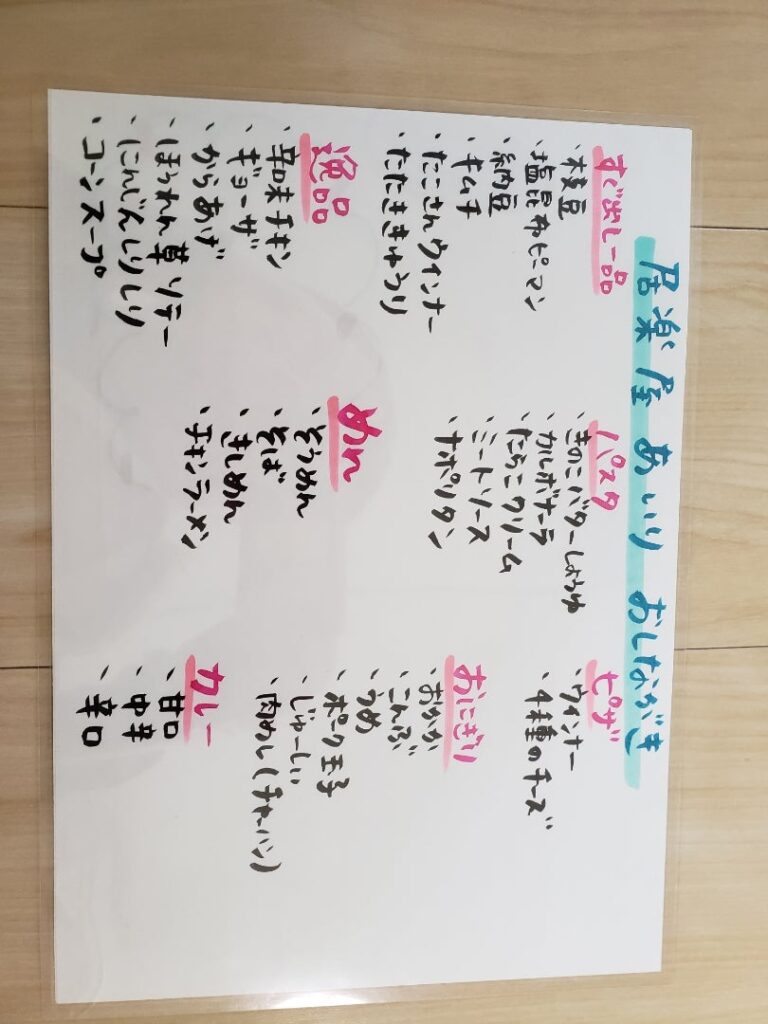 居楽屋 あいり おしながき
すぐ出し一品
・枝豆
・塩昆布ピーマン
・納豆
・キムチ
・たこさんウインナー
・たたききゅうり
逸品
・辛味チキン
・ギョーザ
・からあげ
・ほうれん草ソテー
・にんじんしりしり
・コーンスープ
パスタ
・きのこバターしょうゆ
・カルボナーラ
・たらこクリーム
・ミートソース
・ナポリタン
めん
・そうめん
・そば
・きしめん
・チキンラーメン
ピザ
・ウインナー
・4種のチーズ
おにぎり
・おかか
・こんぶ
・うめ
・ポーク玉子
・じゅーしい
・肉めし(チャーハン)
カレー
・甘口
・中辛
・辛口